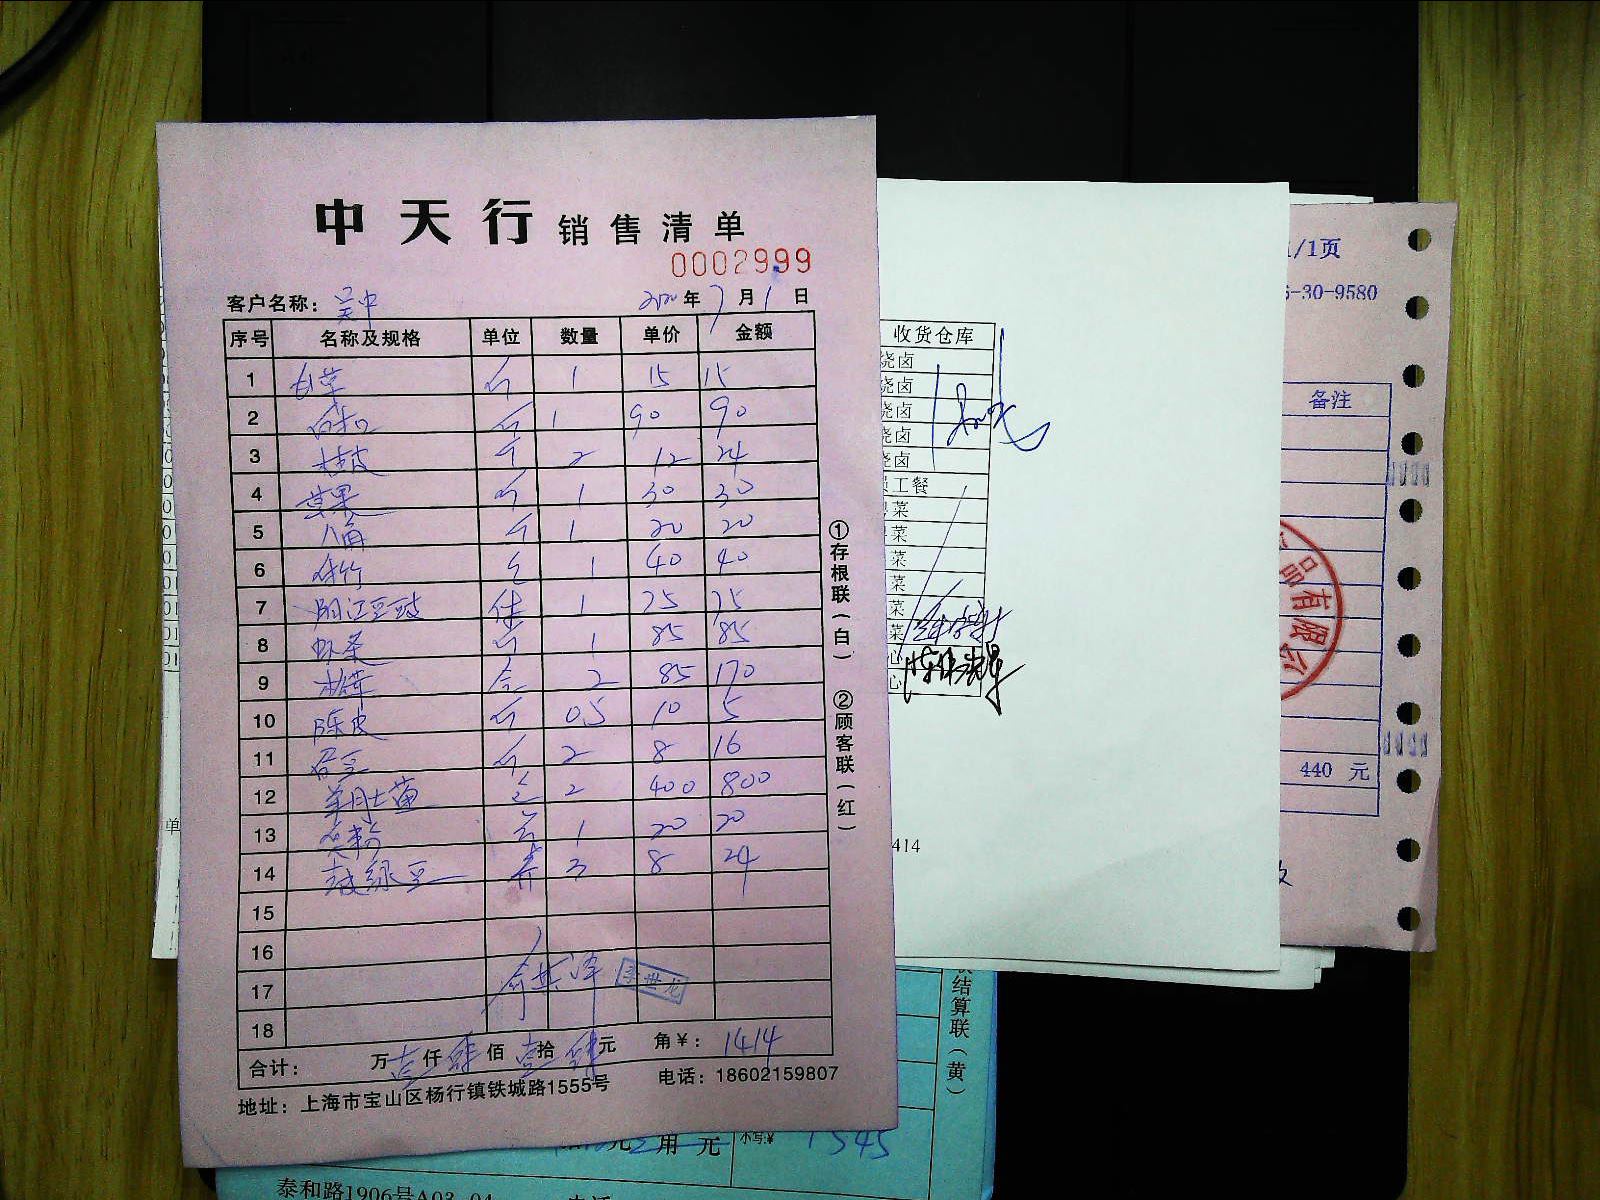 中天行 销售清单
0002999
客户名称： 吴中 2020年7月1日
序号 名称及规格 单位 数量 单价 金额
1 斤 1 15 15
2 斤 1 90 90
3 桂皮 斤 2 12 24
4 草果 斤 1 30 30
5 八角 斤 1 20 20
6 腐竹 包 1 40 40
7 阳江豆豉 件 1 75 75
8 斤 1 85 85
9 2 85 170
10 陈皮 斤 0.5 10 5
11 斤 2 8 16
12 羊肚菌 包 2 400 800
13 1 20 20
14 绿豆 3 8 24
15
16
17
18
李世龙
合计： 万壹仟肆佰壹拾肆元 角￥： 1414
地址：上海市宝山区杨行镇铁城路1555号 电话：18602159807
①存根联（白） ②顾客联（红）
收货仓库
烧卤
烧卤
烧卤
烧卤
烧卤
员工餐
菜
菜
菜
菜
菜
菜
心
心
414
1/1页
-30-9580
备注
品有限公
440 元
结算联（黄）
元
小写:￥ 1545
泰和路1906号A03